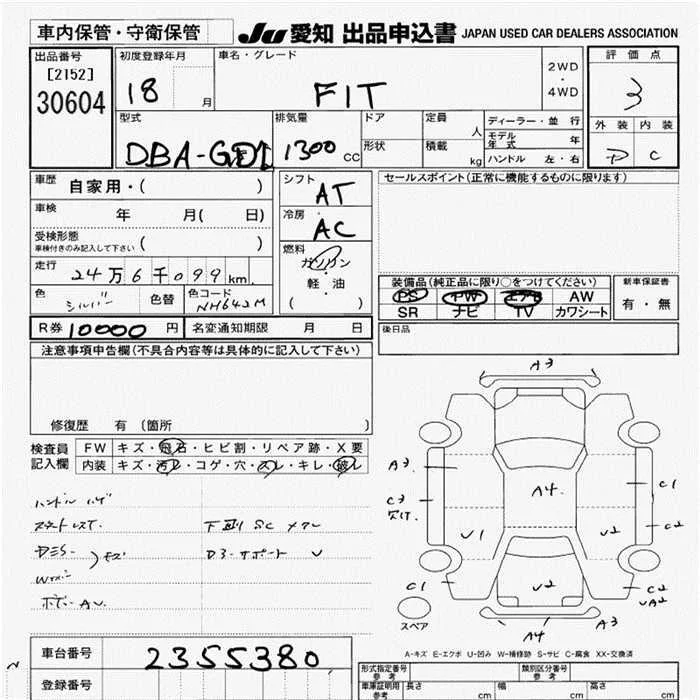 車内保管・守衛保管
JU 愛知 出品申込書 JAPAN USED CAR DEALERS ASSOCIATION
出品番号
[2152]
30604
初度登録年月
18 月
車名・グレード
FIT
2WD
・
4WD
評価点
3
外装 内装
C
型式
DBA-GD1
排気量
1300 cc
ドア
形状
定員 人
積載 kg
ディーラー・並行
モデル年式 年
ハンドル 左・右
車歴 自家用・( )
車検 年 月( 日)
受検形態
車検付きのみ記入して下さい ( )
走行 24万6千099km
色 シルバー 色替 色コード NH642M
R券 10000 円 名変通知期限 月 日
シフト AT
冷房 AC
燃料
ガソリン
・
軽油
( )
セールスポイント(正常に機能するものに限ります)
装備品(純正品に限り○をつけてください)
PS PW エアB AW
SR ナビ TV カワシート
新車保証書
有・無
後日品
注意事項申告欄(不具合内容等は具体的に記入して下さい)
修復歴 有 (箇所 )
検査員記入欄
FW キズ・飛石・ヒビ割・リペア跡・X要
内装 キズ・汚レ・コゲ・穴・スレ・キレ・破レ
ハンドル ハゲ
下回り SC メクレ
キズ
D3-サポート U
ボデー AU
A3
A3
C3
欠け
A4
C1
C2
U1
U2
C1
U2
C2
UA2
スペア
A4
A3
A-キズ E-エクボ U-凹み W-補修跡 S-サビ C-腐食 XX-交換済
車台番号 2355380
登録番号
型式指定番号 参考
類別区分番号 参考
車庫証明用 参考 長さ cm 幅 cm 高さ cm